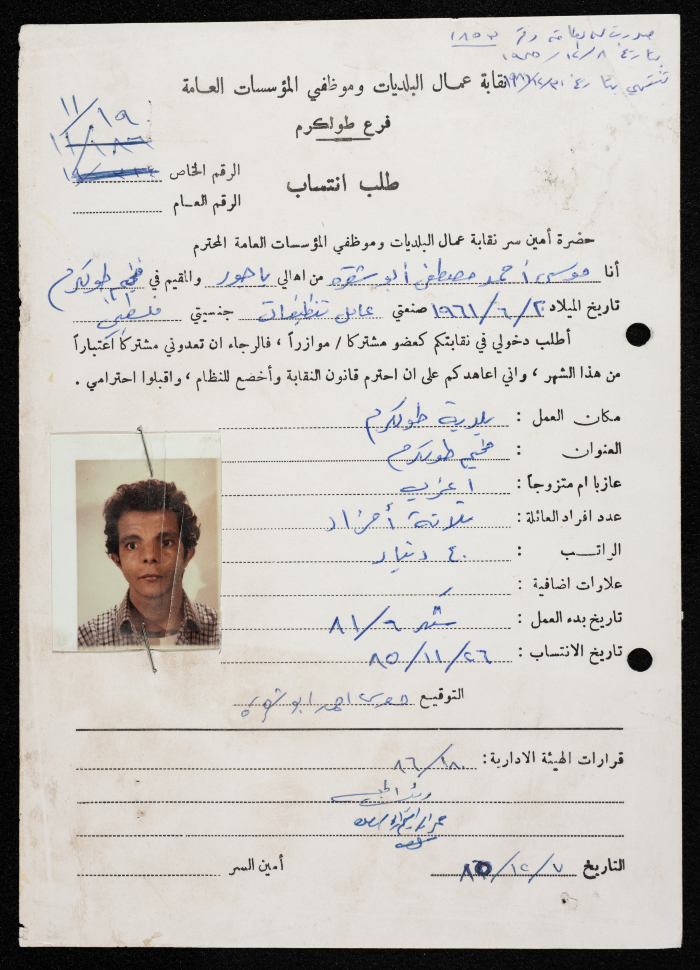 صدرت له بطاقة رقم ١٨٥٣
بتاريخ ١٩٨٥/١٢/٨
تنتهي بتاريخ ١٩٨٦/١٢/٣١
نقابة عمال البلديات وموظفي المؤسسات العامة
فرع طولكرم
١١/١٩
طلب انتساب
الرقم الخاص
الرقم العام
حضرة أمين سر نقابة عمال البلديات وموظفي المؤسسات العامة المحترم
أنا موسى أحمد مصطفى أبو شقره من اهالي والمقيم في مخيم طولكرم
تاريخ الميلاد ١٩٦١/٦/٢ صنعتي عامل تنظيفات جنسيتي فلسطيني
أطلب دخولي في نقابتكم كعضو مشتركا / موازراً ، فالرجاء ان تعدوني مشتركاً اعتباراً
من هذا الشهر ، واني اعاهدكم على ان احترم قانون النقابة وأخضع للنظام ، واقبلوا احترامي .
مكان العمل : بلدية طولكرم
العنوان : مخيم طولكرم
عازبا ام متزوجاً : اعزب
عدد افراد العائلة : ثلاثة أفراد
الراتب : ٤٠ دينار
علاوات اضافية :
تاريخ بدء العمل : شهر ٨١/٦
تاريخ الانتساب : ٨٥/١١/٢٦
التوقيع موسى احمد ابو شقره
قرارات الهيئة الادارية :
التاريخ ٧/١٢/ أمين السر